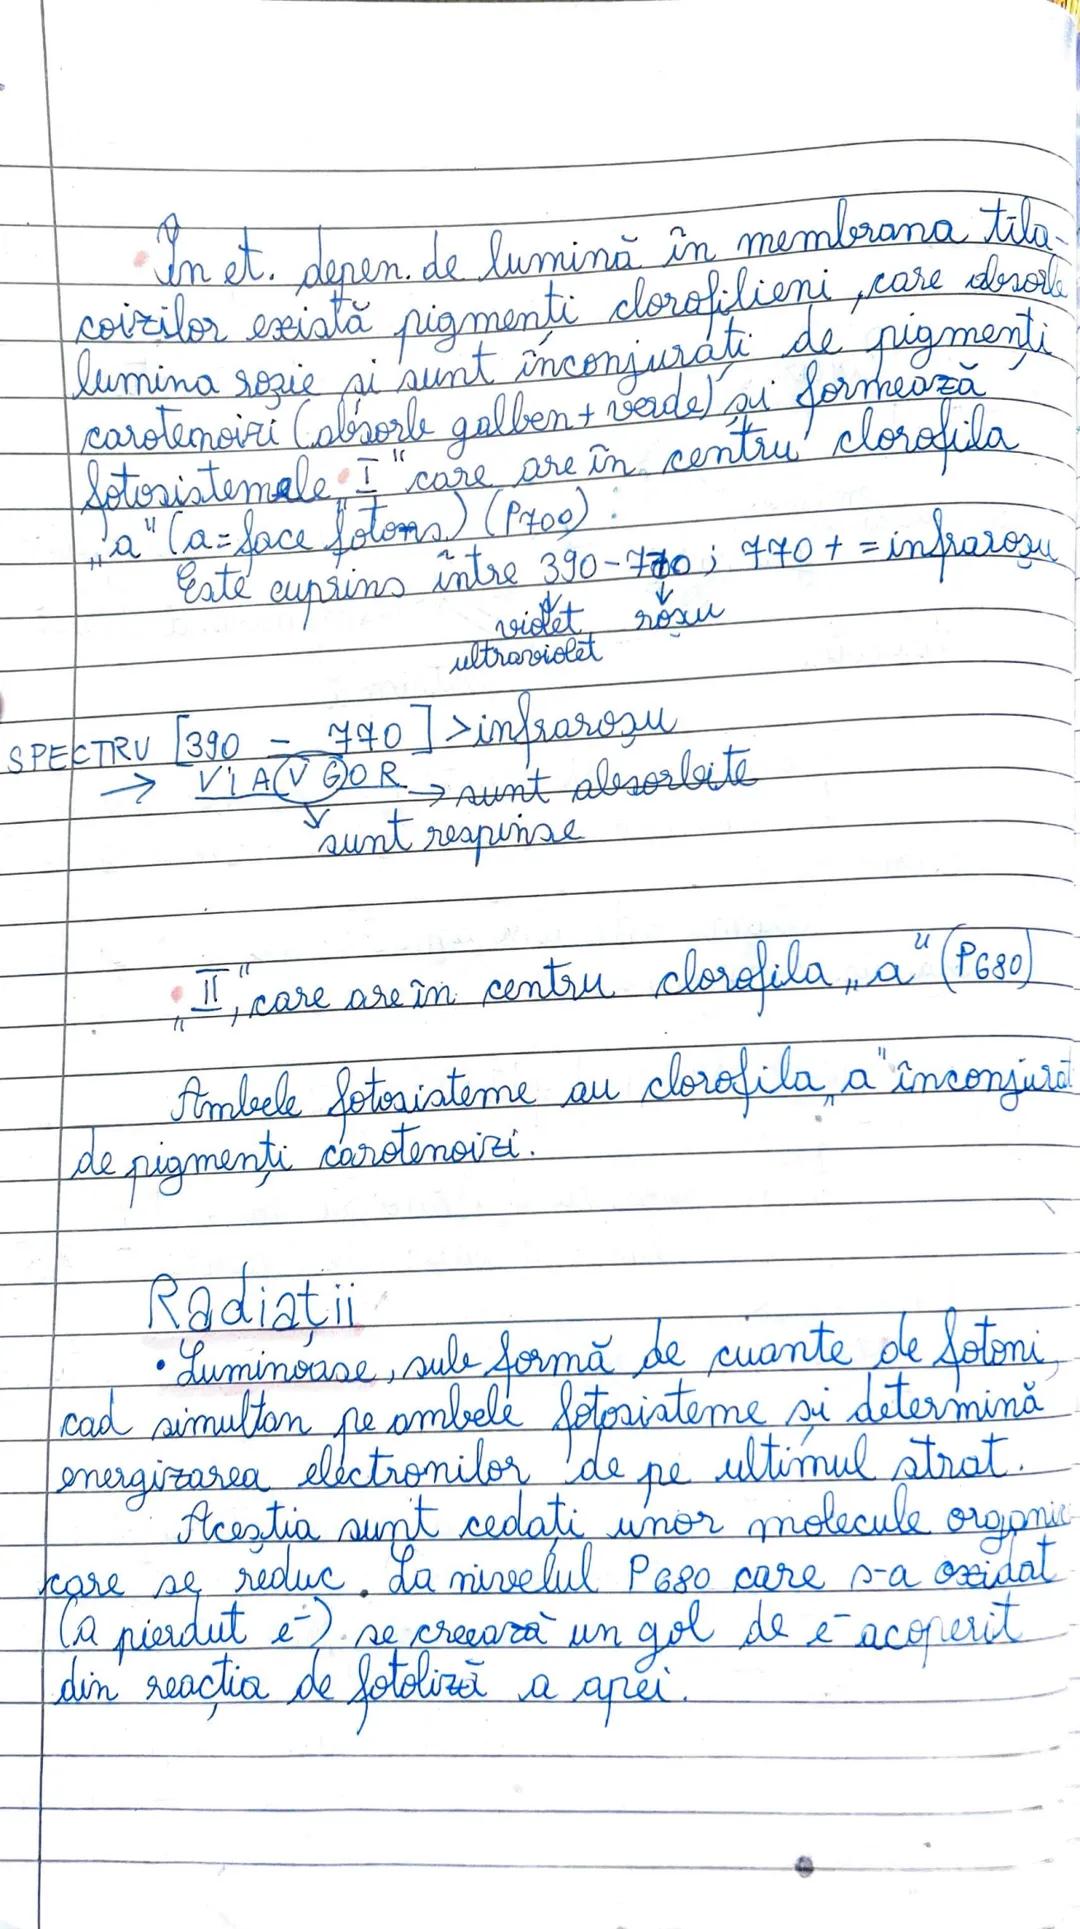 În et. depen. de lumină în membrana tila-
coizilor există pigmenți clorofilieni, care absorb
lumina roșie și sunt înconjurați de pigmenți
carotenoizi (absorb galben + verde) și formează
fotosistemele „I" care are în centru clorofila
„a" (a = face fotoms) (P700).
Este cuprins între 390-770; 770 + = infraroșu
violet roșu
ultraviolet
SPECTRU [390 - 770] > infraroșu
→ V I A (V G) O R → sunt absorbite
sunt respinse
„II", care are în centru clorofila „a" (P680)
Ambele fotosisteme au clorofila „a" înconjurat
de pigmenți carotenoizi.
Radiații
• Luminoase, sub formă de cuante de fotoni,
cad simultan pe ambele fotosisteme și determină
energizarea electronilor de pe ultimul strat.
Aceștia sunt cedați unor molecule organic
care se reduc. La nivelul P680 care s-a oxidat
(a pierdut e⁻) se creează un gol de e⁻ acoperit
din reacția de fotoliză a apei.